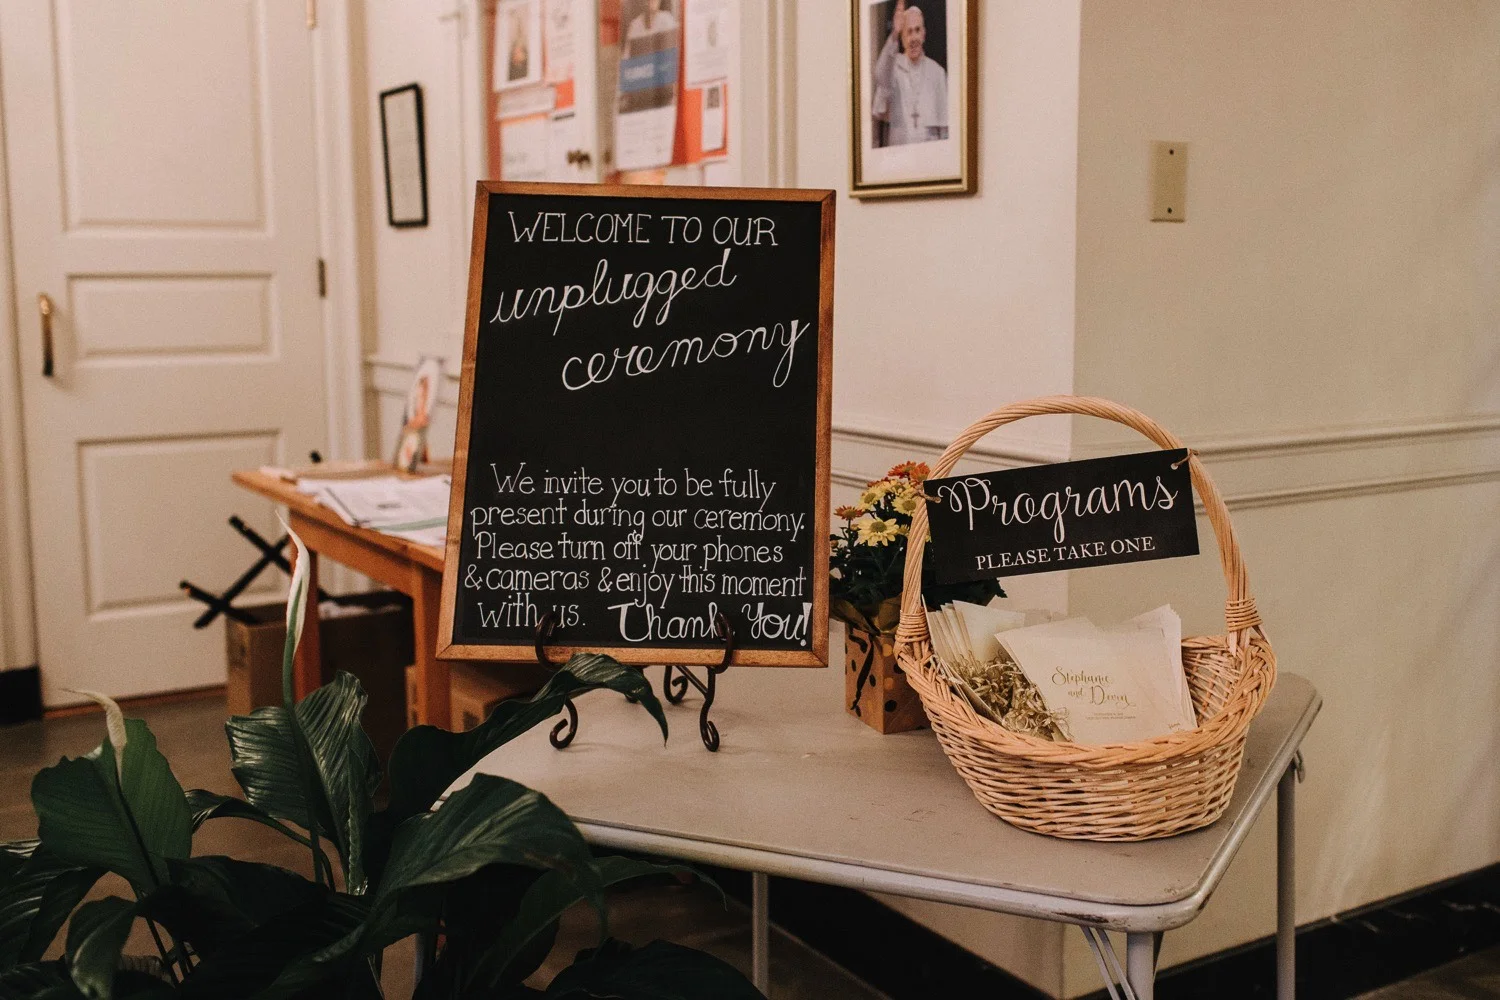 WELCOME TO OUR
unplugged
ceremony
We invite you to be fully
present during our ceremony.
Please turn off your phones
& cameras & enjoy this moment
with us. Thank You!
Programs
PLEASE TAKE ONE
Stephanie
and Devin